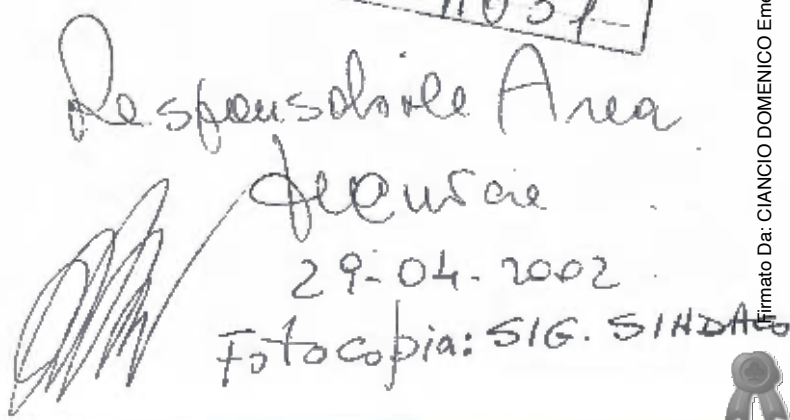 Responsabile Area
Tecnica
29-04-2002
Fotocopia: SIG. SINDACO
Firmato Da: CIANCIO DOMENICO Eme